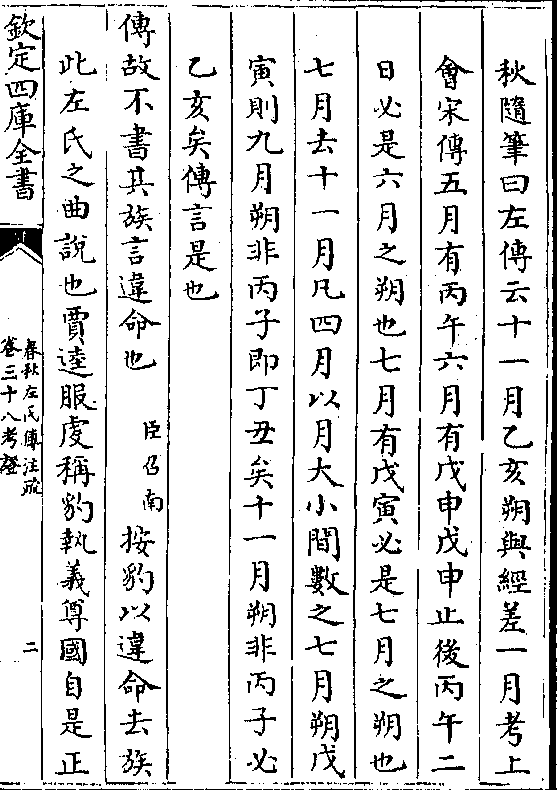 秋隨筆曰左傳云十一月乙亥朔與經差一月考上
會宋傳五月有丙午六月有戊申戊申止後丙午二
日必是六月之朔也七月有戊寅必是七月之朔也
七月去十一月凡四月以月大小間數之七月朔戊
寅則九月朔非丙子即丁丑矣十一月朔非丙子必
乙亥矣傳言是也
傳故不書其族言違命也 臣召南按豹以違命去族
此左氏之曲說也賈逵服虔稱豹執義尊國自是正
欽定四庫全書
春秋左氏傳注疏
卷三十八考證
二